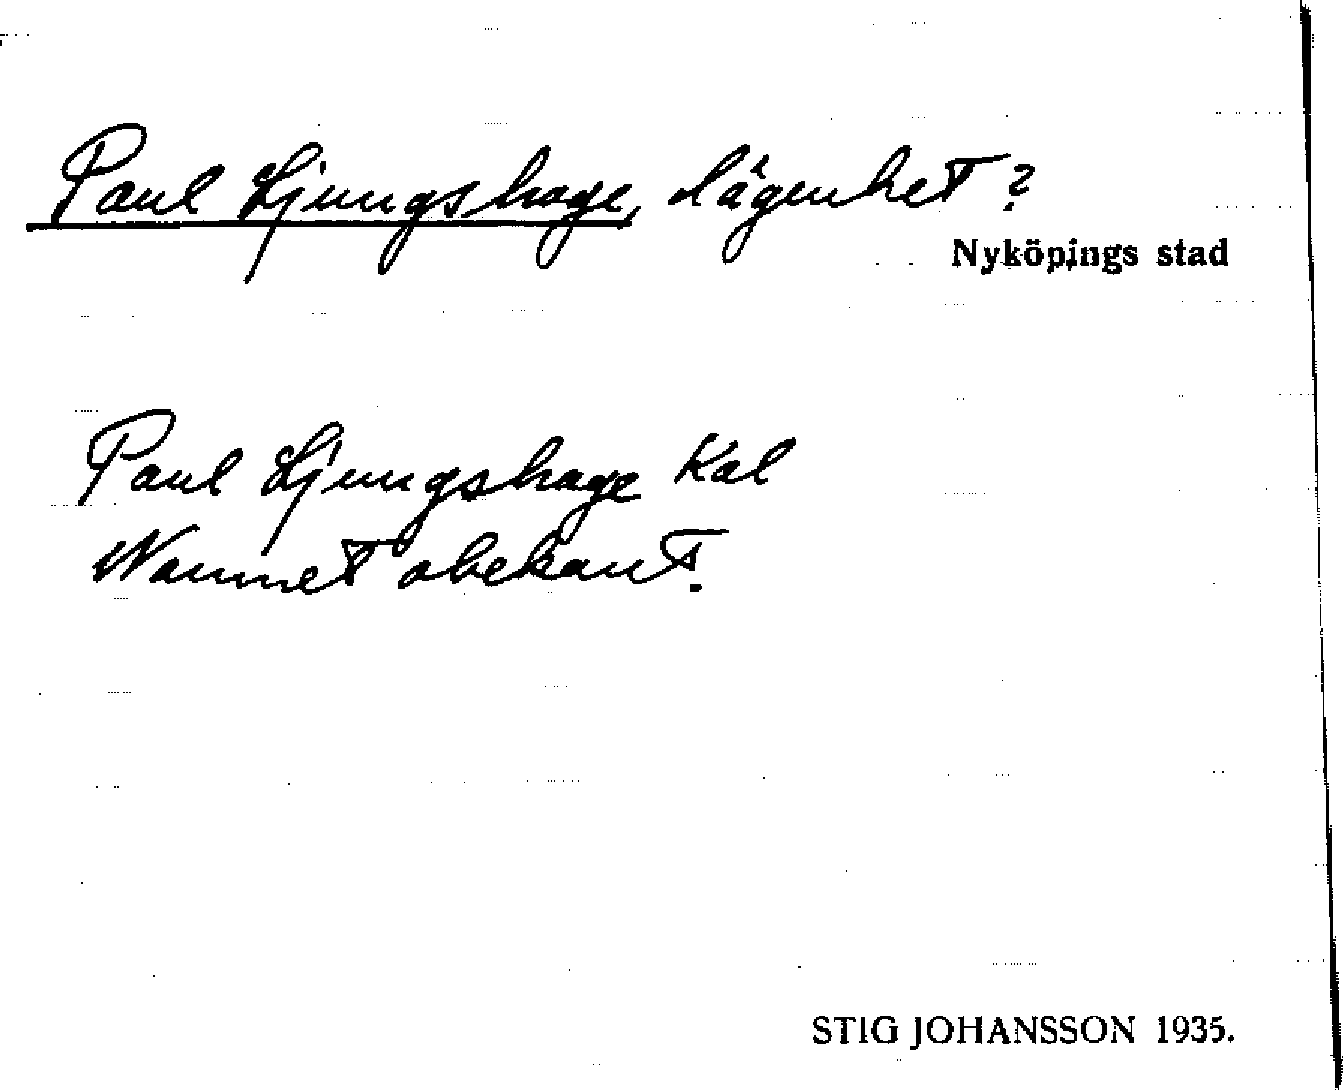 Paul Ljungshage, lägenhet?
Nyköpings stad
Paul Ljungshage Kal
Namnet obekant.
STIG JOHANSSON 1935.